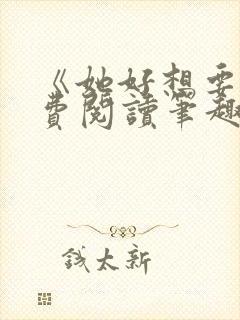 《她好想要
費閱讀筆趣
錢太新